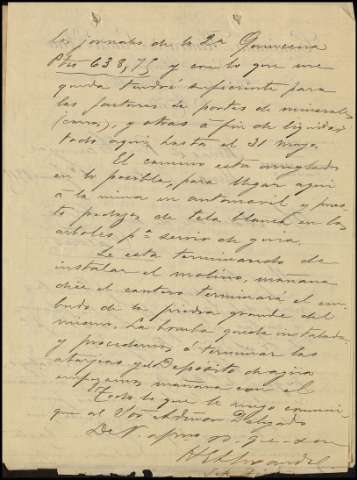 los jornales de la 2ª Quincena
Pts 638,75 y con lo que me
queda tendré suficiente para
las facturas de portes de minerales
(carros), y otras á fin de liquidar
todo aqui hasta el 31 Mayo.
El camino está arreglado
en lo posible, para llegar aqui
á la mina en automovil y pues-
to pedazos de tela blanca en los
árboles, pª servir de guia.
Se está terminando de
instalar el molino, mañana
dice el cantero terminará el em-
budo de la piedra grande del
mismo, La bomba queda instalada
y procedemos á terminar las
atarjeas y el Deposito de agua
empezamos mañana con el
Todo lo que le ruego comuni-
que al Sor Adrian Delgado
De V. afmo